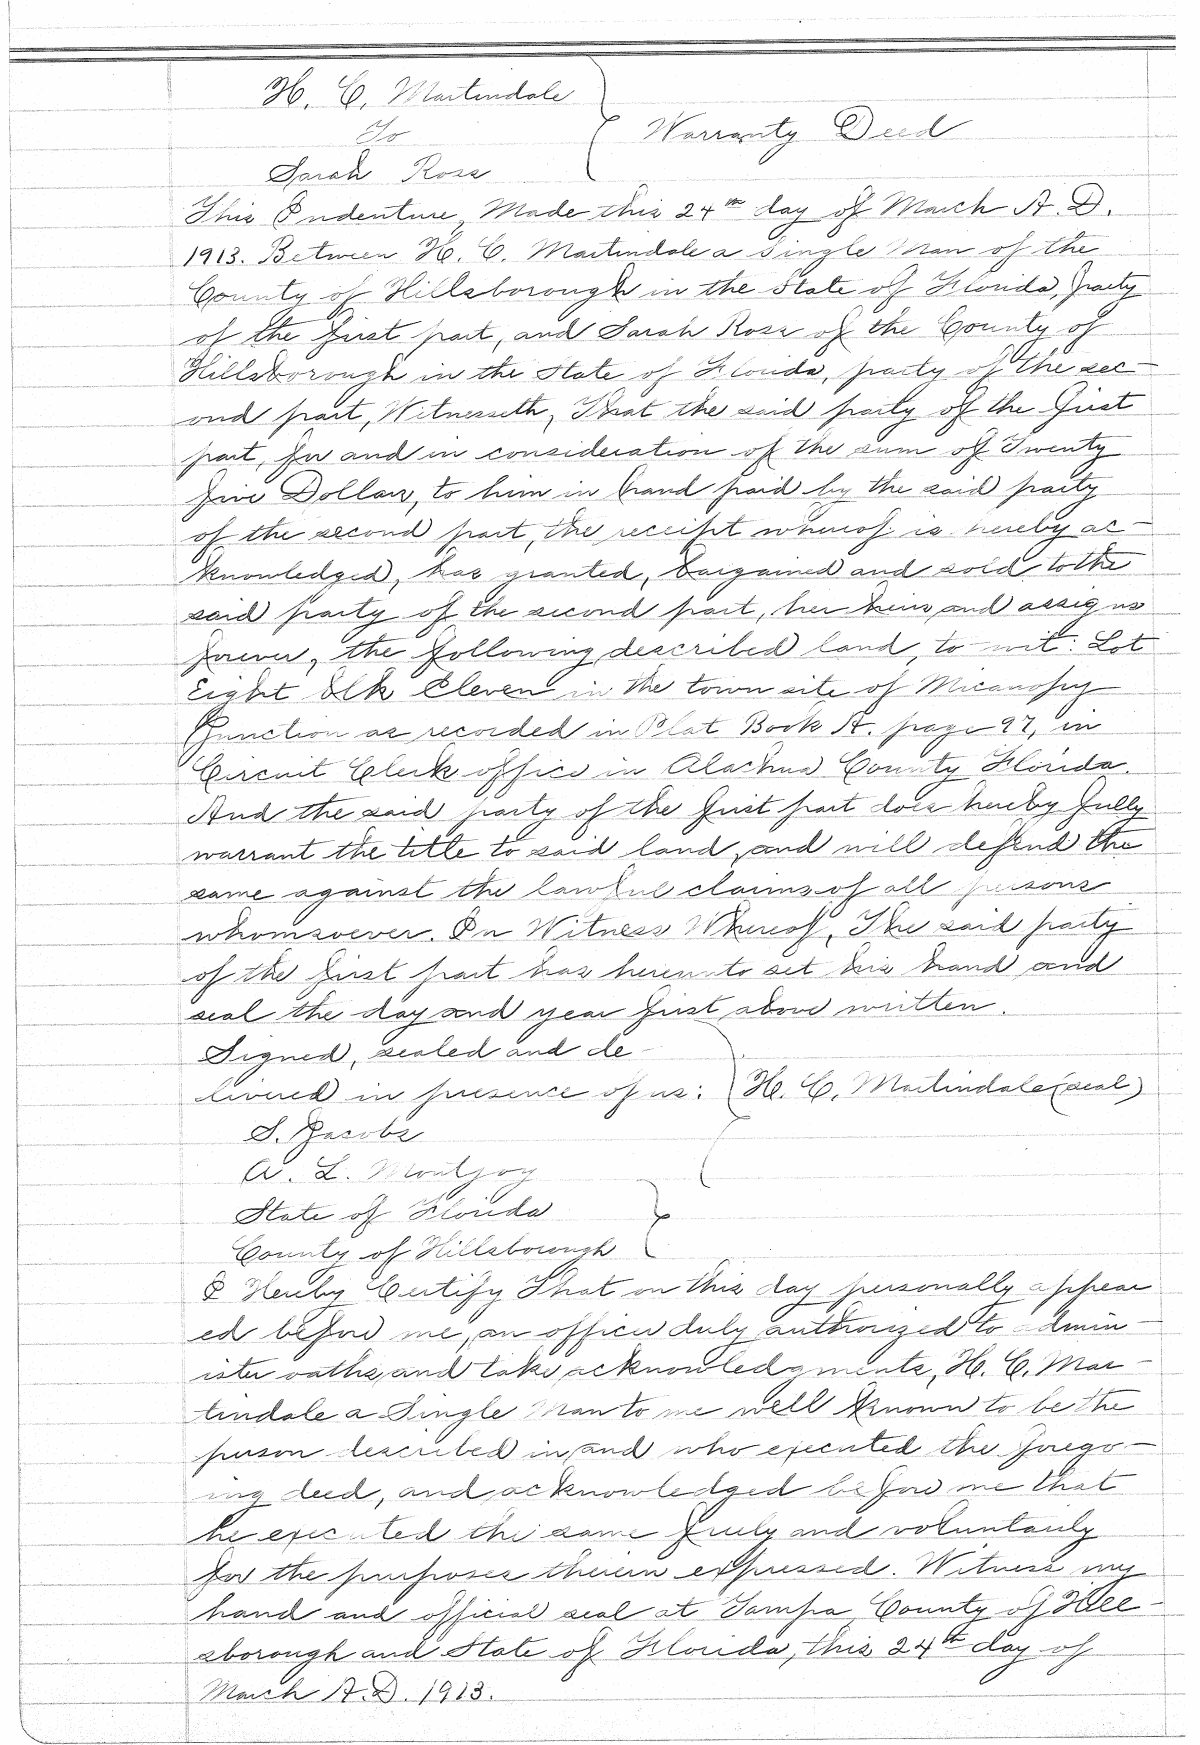 H. C. Martindale
To
Warranty Deed
Sarah Ross
This Indenture, Made this 24th day of March A. D.
1913. Between H. C. Martindale a Single Man of the
County of Hillsborough in the State of Florida, party
of the first part, and Sarah Ross of the County of
Hillsborough in the State of Florida, party of the sec-
ond part, Witnesseth, That the said party of the first
part, for and in consideration of the sum of Twenty
five Dollars, to him in hand paid by the said party
of the second part, the receipt whereof is hereby ac-
knowledged, has granted, bargained and sold to the
said party of the second part, her heirs and assigns
forever, the following described land, to wit: Lot
Eight Blk Eleven in the town site of Micanopy
Junction as recorded in Plat Book A. page 97, in
Circuit Clerk office in Alachua County Florida.
And the said party of the first part does hereby fully
warrant the title to said land, and will defend the
same against the lawful claims of all persons
whomsoever. In Witness Whereof, The said party
of the first part has hereunto set his hand and
seal the day and year first above written.
Signed, sealed and de-
livered in presence of us: H. C. Martindale (seal)
S. Jacobs
A. L. Montjoy
State of Florida
County of Hillsborough
I Hereby Certify That on this day personally appear
ed before me, an officer duly authorized to admin-
ister oaths, and take acknowledgments, H. C. Mar-
tindale a Single Man to me well known to be the
person described in, and who executed the forego-
ing deed, and acknowledged before me that
he executed the same freely and voluntarily
for the purposes therein expressed. Witness my
hand and official seal at Tampa, County of Hill-
sborough and State of Florida, this 24th day of
March A. D. 1913.